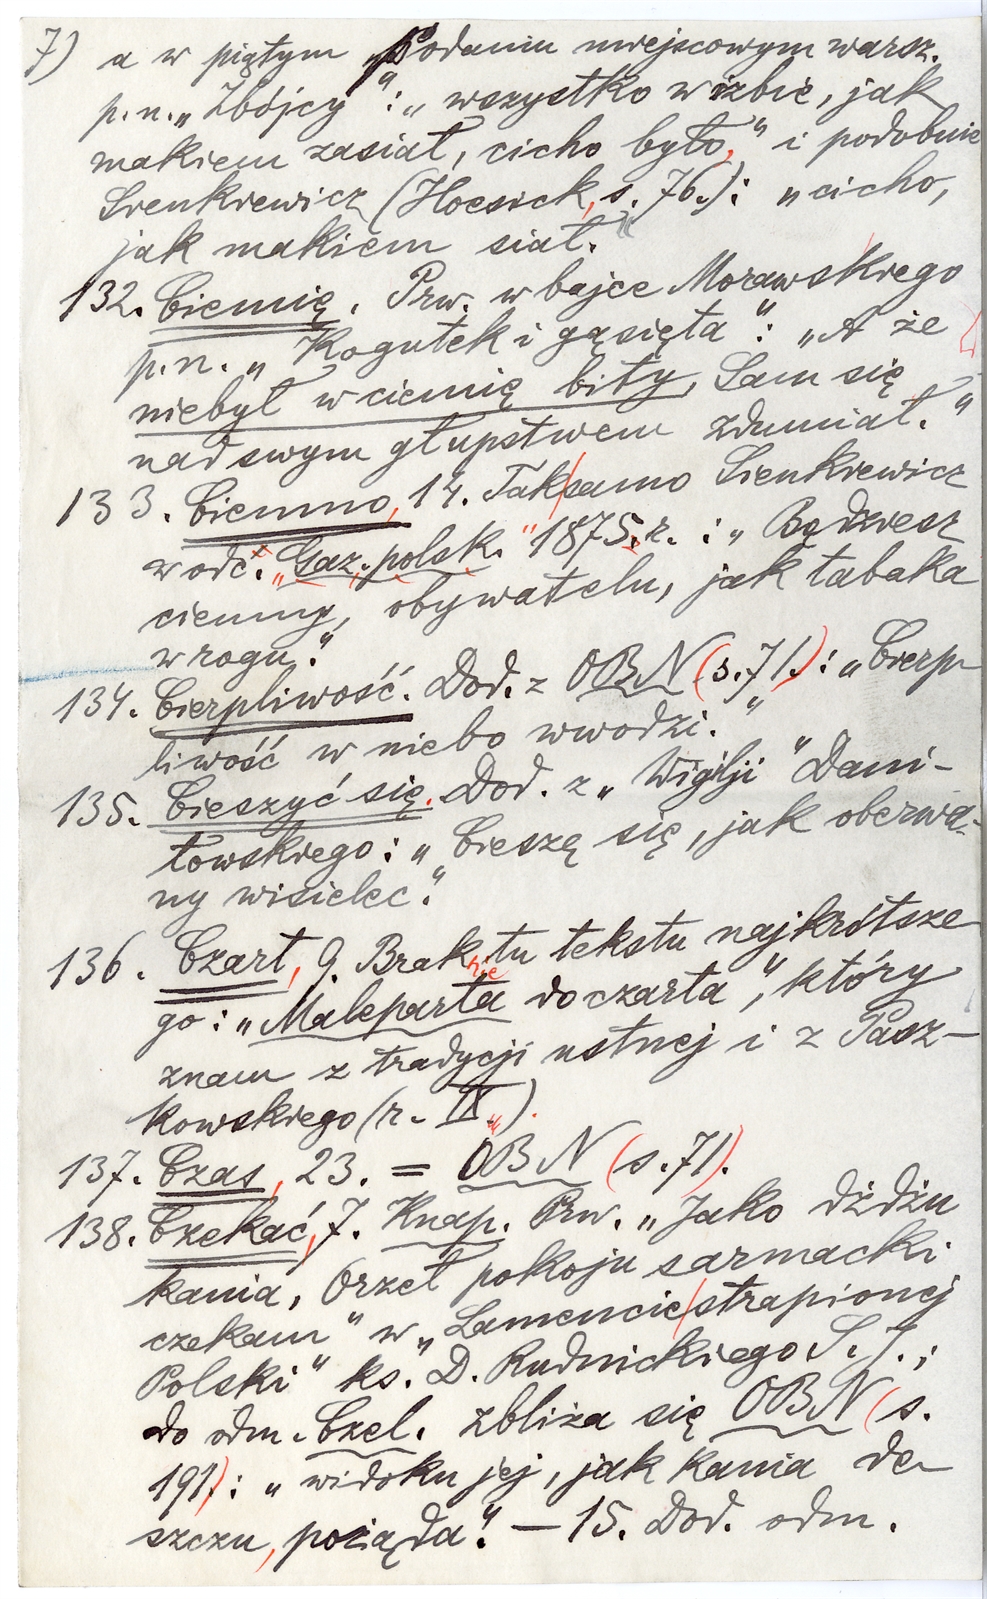 7) a w piątym „Podaniu miejscowym warsz.
p. n. „Zbójcy”: „wszystko w izbie, jak
makiem zasiał, cicho było,” i podobnie
Sienkiewicz (Hoesick, s. 76.): „cicho,
jak makiem siał.”
132. Ciemię. Prw. w bajce Morawskiego
p. n. „Kogutek i gąsięta”: „A że
niebył w ciemię bity, Sam się
nad swym głupstwem zdumiał.”
133. Ciemno, 14. Tak samo Sienkiewicz
w odc. „Gaz. polsk.” 1875. r.: „Będziesz
ciemny, obywatelu, jak tabaka
w rogu.”
134. Cierpliwość. Dod. z OBN (s. 71.): „Cierp-
liwość w niebo wwodzi.”
135. Cieszyć się. Dod. z „Wigilji” Dani-
łowskiego: „Cieszę się, jak oberwa-
ny wisielec.”
136. Czart, 9. Brak tu tekstu najkrótsze-
go: „Maleparta do czarta”, który
znam z tradycji ustnej i z Pasz-
kowskiego (r. IX.).
137. Czas, 23. = OBN (s. 71).
138. Czekać, 7. Knap. Prw. „Jako dżdżu
kania, Orzeł pokoju sarmacki
czekam” w „Lamencie strapionej
Polski” ks. D. Rudnickiego S. J.;
do odm. Czel. zbliża się OBN (s.
191): „widoku jej, jak kania de-
szczu, pożąda.” — 15. Dod. odm.